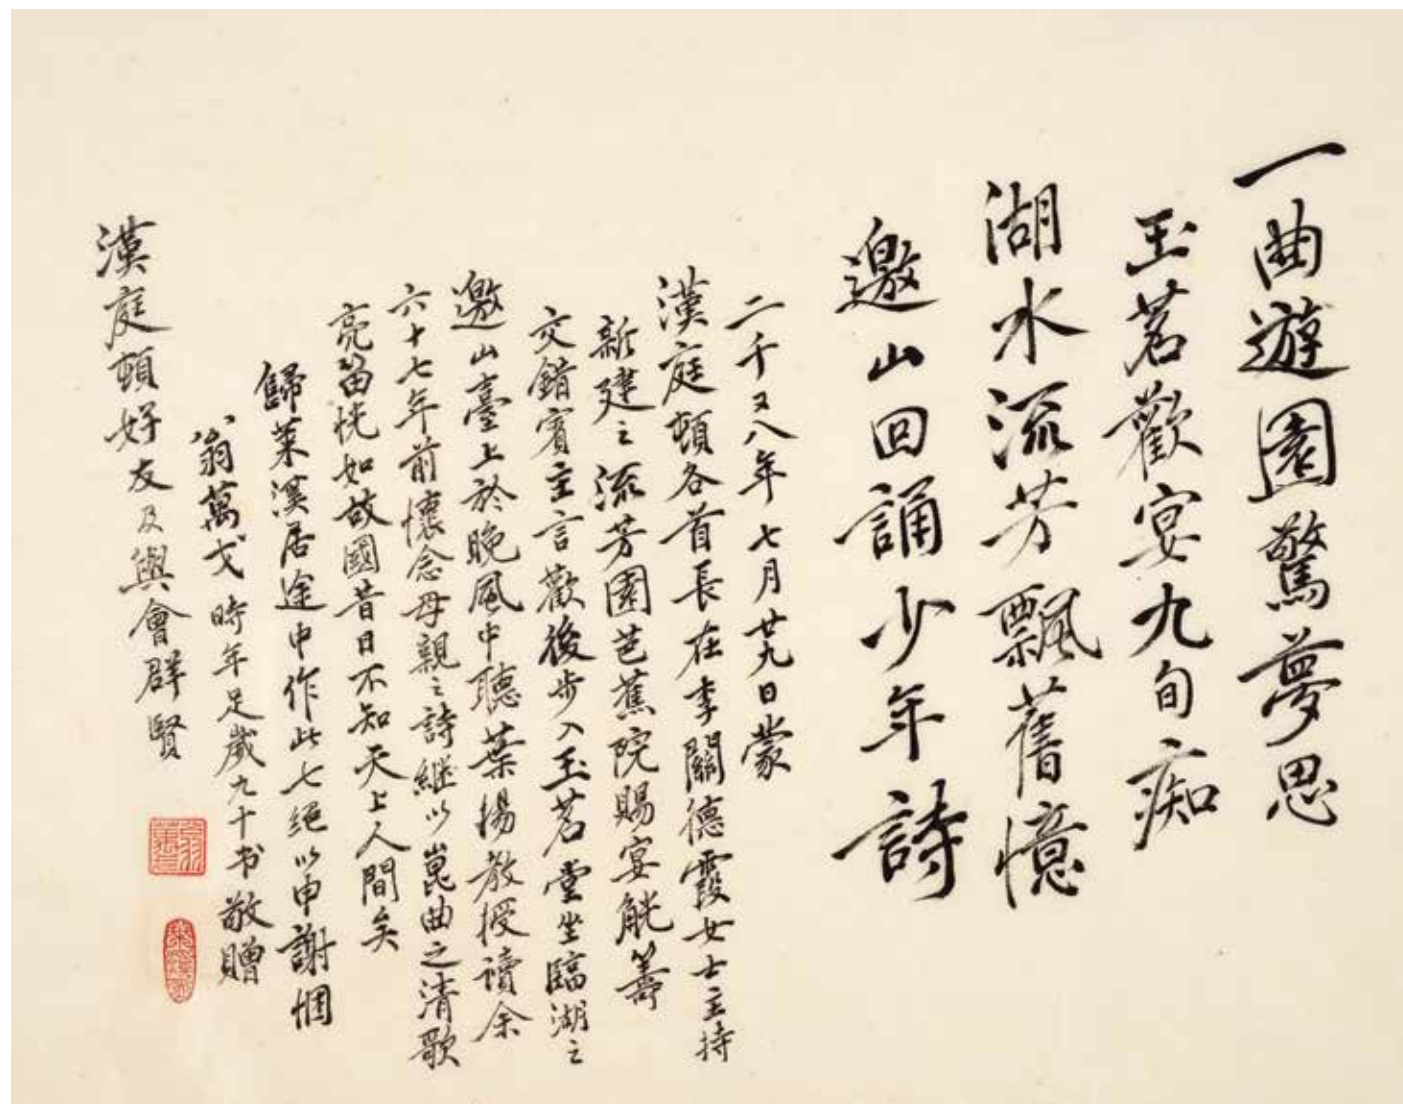 一曲遊園驚夢思
玉茗歡宴九旬痴
湖水流芳飄舊憶
邀山回誦少年詩
二千又八年七月廿九日蒙
漢庭頓各首長在李關德霞女士主持
新建之流芳園芭蕉院賜宴觥籌
交錯賓主言歡後步入玉茗堂坐臨湖之
邀山臺上於晚風中聽葉揚教授讀余
六十七年前懷念母親之詩繼以崑曲之清歌
亮笛恍如故國昔日不知天上人間矣
歸萊溪居途中作此七絕以申謝悃
翁萬戈時年足歲九十书敬贈
漢庭頓好友及與會群賢